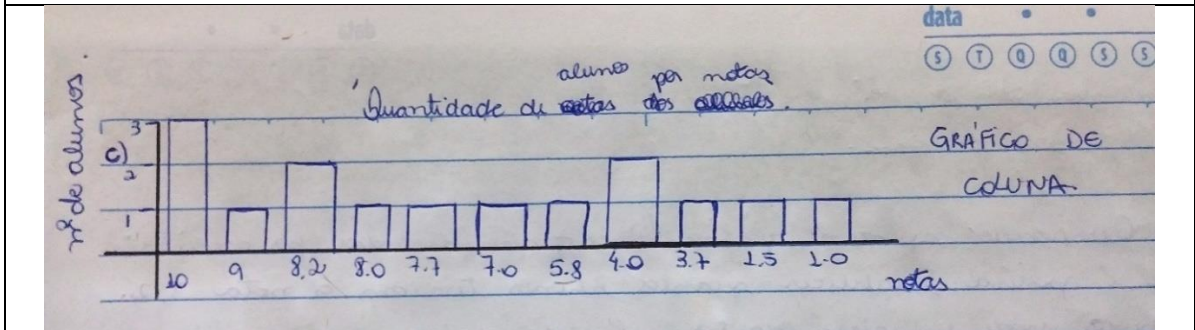 data
S T Q Q S S
alunos por notas
Quantidade de notas dos
nº de alunos.
GRÁFICO DE
COLUNA
c)
3
2
1
10 9 8.2 8.0 7.7 7.0 5.8 4.0 3.7 1.5 1.0
notas